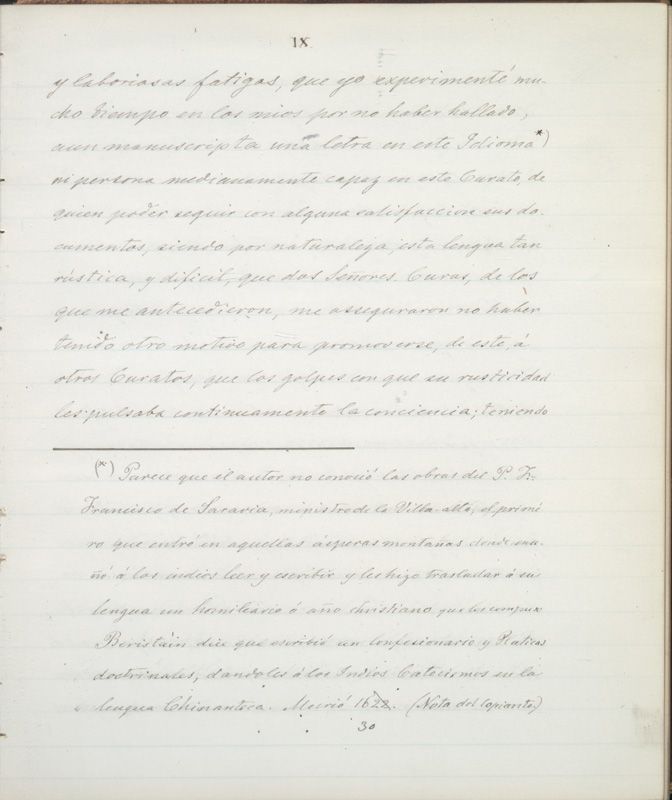 IX
y laboriosas fatigas, que yo experimenté mu-
cho tiempo en los mios por no haber hallado,
aun manuscripta una letra en este Idioma *)
ni persona medianamente capaz en este Curato, de
quien poder seguir con alguna satisfaccion sus do-
cumentos, siendo por naturaleza, esta lengua tan
rústica, y dificil, que dos Señores Curas, de los
que me antecedieron, me asseguraron no haber
tenido otro motivo para promoverse, de este, á
otros Curatos, que los golpes con que su rusticidad
les pulsaba continuamente la conciencia; teniendo
(*) Parece que el autor no conoció las obras del P. Fr.
Francisco de Saravia, ministro de la Villa-alta, el prime
ro que entró en aquellas ásperas montañas donde ense-
ñó á los indios leer y escribir y les hizo trasladar á su
lengua un homiliario ó año christiano que les compuso
Beristáin dice que escribió un Confesionario y Platicas
doctrinales, dandoles á los Indios Catecismos en la
lengua Chinanteca. Murió 1628. (Nota del copiante)
30